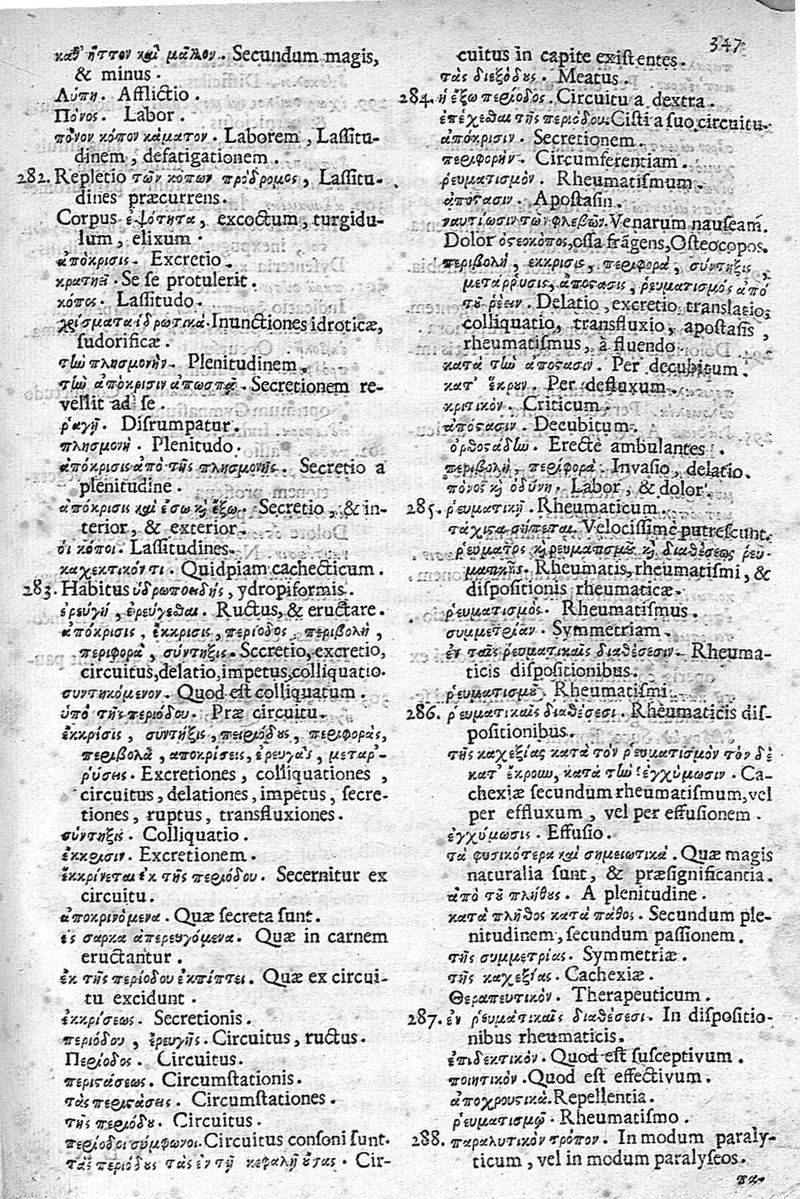 347
καθ' ἧττον καὶ μᾶλλον. Secundum magis,
& minus.
Λύπη. Afflictio.
Πόνος. Labor.
πόνον κόπον κάματον. Laborem, Lassitu-
dinem, defatigationem.
282. Repletio τῶν κόπων πρόδρομος, Lassitu-
dines præcurrens.
Corpus excoctum, turgidu-
lum, elixum.
ἀπόκρισις. Excretio.
κρατηεῖ. Se se protulerit.
κόπος. Lassitudo.
χρίσματα ἱδρωτικά. Inunctiones idroticæ,
sudorificæ.
τὴν πλησμονήν. Plenitudinem.
τὴν ἀπόκρισιν ἀποσπᾷ. Secretionem re-
vellit ad se.
ῥαγῇ. Disrumpatur.
πλησμονή. Plenitudo.
ἀπόκρισις ἀπὸ τῆς πλησμονῆς. Secretio a
plenitudine.
ἀπόκρισις καὶ ἔσω καὶ ἔξω. Secretio, & in-
terior, & exterior.
ὁι κόποι. Lassitudines.
καχεκτικόν τι. Quidpiam cachecticum.
283. Habitus ὑδρωποειδὴς, ydropiformis.
ἐρευγὴ, ἐρεύγεσθαι. Ructus, & eructare.
ἀπόκρισις, ἔκκρισις, περίοδος, περιβολὴ,
περιφορὰ, σύντηξις. Secretio, excretio,
circuitus, delatio, impetus, colliquatio.
συντηκόμενον. Quod est colliquatum.
ὑπὸ τῆς περιόδου. Præ circuitu.
ἐκκρίσις, σύντηξις, περιόδους, περιφορὰς,
περιβολὰ, ἀποκρίσεις, ἐρευγὰς, μεταῤ-
ῥύσης. Excretiones, colliquationes,
circuitus, delationes, impetus, secre-
tiones, ruptus, transfluxiones.
σύντηξις. Colliquatio.
ἔκκρισιν. Excretionem.
ἐκκρίνεται ἐκ τῆς περιόδου. Secernitur ex
circuitu.
ἀποκρινόμενα. Quæ secreta sunt.
ἐς σαρκα ἀπερευγόμενα. Quæ in carnem
eructantur.
ἐκ τῆς περίοδου ἐκπίπτει. Quæ ex circui-
tu excidunt.
ἐκκρίσεως. Secretionis.
περιόδου, ἐρευγῆς. Circuitus, ructus.
Περίοδος. Circuitus.
περιστάσεως. Circumstationis.
τὰς περιστάσεις. Circumstationes.
τῆς περιόδου. Circuitus.
περίοδοι σύμφωνοι. Circuitus consoni sunt.
τὰς περιόδους τὰς ἐν τῇ κεφαλῇ οὔσας. Cir-
cuitus in capite existentes.
τὰς διεξόδους. Meatus.
284. ἡ ἔξω περίοδος. Circuitu a dextra.
ἐπέχεσθαι τῆς περιόδου. Cisti a suo circuitu.
ἀπόκρισιν. Secretionem.
περιφορὴν. Circumferentiam.
ῥευματισμόν. Rheumatismum.
ἀπόστασιν. Apostasin.
ναυτίωσιν τῶν φλεβῶν. Venarum nauseam.
Dolor ὀστεοκόπος, ossa frãgens, Osteocopos.
περιβολὴ, ἔκκρισις, περιφορὰ, σύντηξις,
μετάρρυσις, ἀπόστασις, ῥευματισμὸς ἀπὸ
τοῦ ῥέειν. Delatio, excretio, translatio,
colliquatio, transfluxio, apostasis,
rheumatismus, à fluendo.
κατὰ τὴν ἀπόστασιν. Per decubitum.
κατ' ἔκρουν. Per defluxum.
κριτικόν. Criticum.
ἀπόστασιν. Decubitum.
ὀρθοστάδην. Erectè ambulantes.
περιβολὴ, περιφορά. Invasio, delatio.
πόνος καὶ ὀδύνη. Labor, & dolor.
285. ῥευματική. Rheumaticum.
τάχιστα σήπεται. Velocissimè putrescunt.
ῥεύματος καὶ ρευματισμοῦ καὶ διαθέσεως ῥευ-
ματικῆς. Rheumatis, rheumatismi, &
dispositionis rheumaticæ.
ῥευματισμός. Rheumatismus.
συμμετρίαν. Symmetriam.
ἐν ταῖς ῥευματικαῖς διαθέσεσιν. Rheuma-
ticis dispositionibus.
ῥευματισμοῦ. Rheumatismi.
286. ῥευματικαῖς διαθέσεσι. Rheumaticis dis-
positionibus.
τῆς καχεξίας κατὰ τὸν ῥευματισμὸν τὸν δὲ
κατ' ἔκρουν, κατὰ τὴν ἐγχύμωσιν. Ca-
chexiæ secundum rheumatismum, vel
per effluxum, vel per effusionem.
ἐγχύμωσις. Effusio.
τὰ φυσικότερα καὶ σημειωτικά. Quæ magis
naturalia sunt, & præsignificantia.
ἀπὸ τοῦ πλήθους. A plenitudine.
κατὰ πλῆθος κατὰ πάθος. Secundum ple-
nitudinem, secundum passionem.
τῆς συμμετρίας. Symmetriæ.
τῆς καχεξίας. Cachexiæ.
Θεραπευτικόν. Therapeuticum.
287. ἐν ῥευματικαῖς διαθέσεσι. In dispositio-
nibus rheumaticis.
ἐπιδεκτικόν. Quod est susceptivum.
ποιητικόν. Quod est effectivum.
ἀποχρουστικά. Repellentia.
ῥευματισμῷ. Rheumatismo.
288. παραλυτικὸν τρόπον. In modum paraly-
ticum, vel in modum paralyseos.
πα-